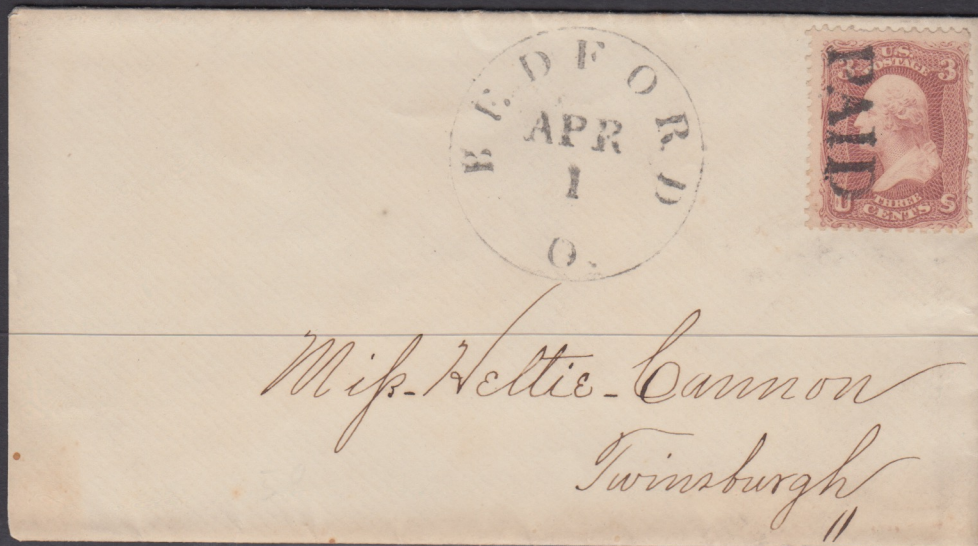 BEDFORD
APR
1
O.
U.S.
POSTAGE
3 3
PAID
THREE
CENTS
U S
Miſs Hettie Cannon
Twinsburgh
"